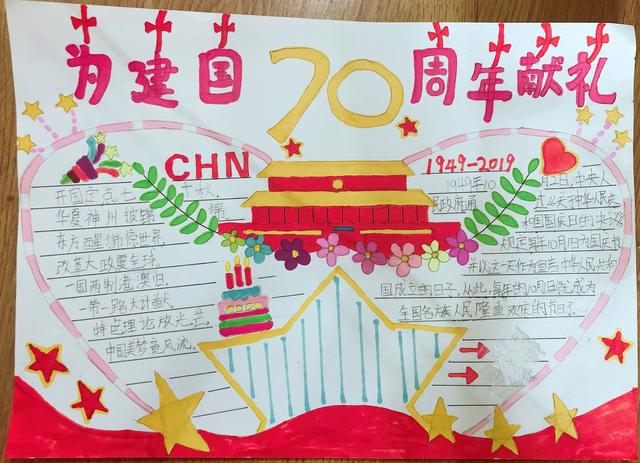 为建国70周年献礼
CHN
开国定点七十秋,
华夏神州披锦绣,
东方醒狮惊世界,
改革大政震全球.
一国两制港澳归,
一带一路大计酋,
特色理论放光芒,
中国美梦竟风流.
1949-2019
1949年10月2日,中央人
民政府通
中华人民共
和国国庆日的
规定每年10月1日为国庆
并以这一天作为宣告中华人民共和
国成立的日子.从此,每年的10月1日就成为
全国各族人民隆重欢庆的节日了.